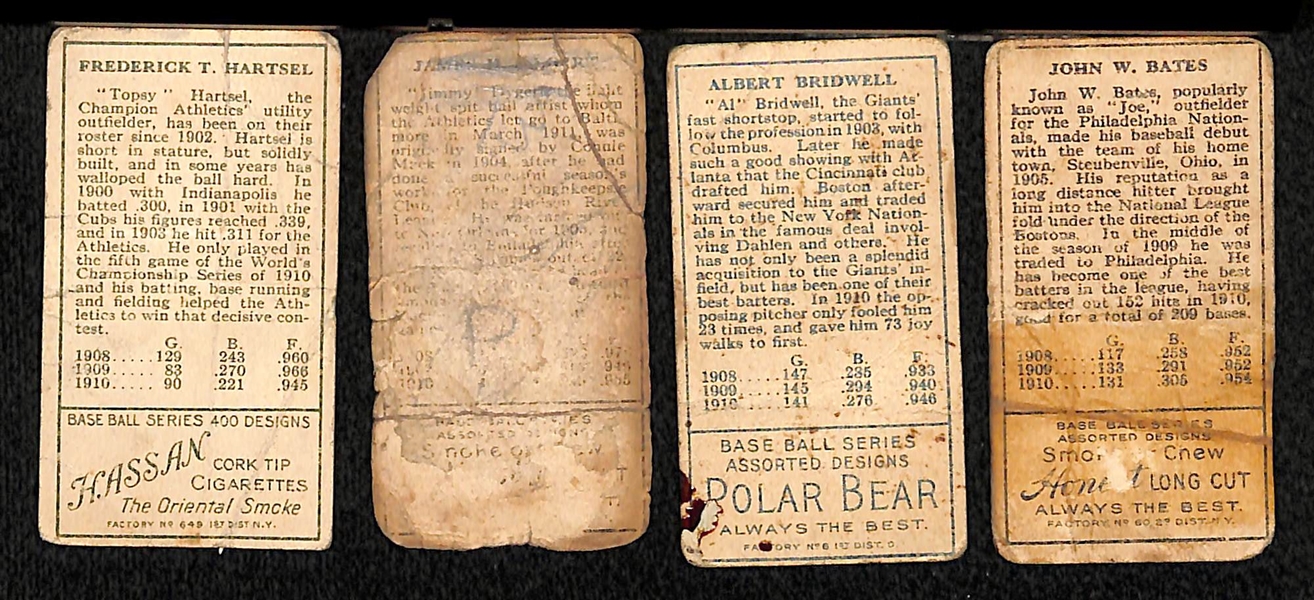 FREDERICK T. HARTSEL
"Topsy" Hartsel, the
Champion Athletics' utility
outfielder, has been on their
roster since 1902. Hartsel is
short in stature, but solidly
built, and in some years has
walloped the ball hard. In
1900 with Indianapolis he
batted .300, in 1901 with the
Cubs his figures reached .339,
and in 1903 he hit .311 for the
Athletics. He only played in
the fifth game of the World's
Championship Series of 1910
and his batting, base running
and fielding helped the Ath-
letics to win that decisive con-
test.
G. B. F.
1908.....129 243 .960
1909..... 83 .270 .966
1910..... 90 .221 .945
BASE BALL SERIES 400 DESIGNS
HASSAN CORK TIP
CIGARETTES
The Oriental Smoke
FACTORY Nº 649 1ST DIST. N.Y.
"Jimmy" the light
weight spit ball artist whom
the Athletics let go to Balti-
more in March 1911, was
originally signed by Connie
Mack in 1904, after he had
done a successful season's
work for the Poughkeepsie
Club, of the Hudson River
He was
for 1905, and
P
ASSORTED DESIGNS
Smoke
ALBERT BRIDWELL
"Al" Bridwell, the Giants'
fast shortstop, started to fol-
low the profession in 1903, with
Columbus. Later he made
such a good showing with At-
lanta that the Cincinnati club
drafted him. Boston after-
ward secured him and traded
him to the New York Nation-
als in the famous deal invol-
ving Dahlen and others. He
has not only been a splendid
acquisition to the Giants' in-
field, but has been one of their
best batters. In 1910 the op-
posing pitcher only fooled him
23 times, and gave him 73 joy
walks to first.
G. B. F.
1908......147 .285 .933
1909......145 .294 .940
1910......141 .276 .946
BASE BALL SERIES
ASSORTED DESIGNS
POLAR BEAR
ALWAYS THE BEST.
FACTORY Nº 6 1ST DIST. O.
JOHN W. BATES
John W. Bates, popularly
known as "Joe," outfielder
for the Philadelphia Nation-
als, made his baseball debut
with the team of his home
town, Steubenville, Ohio, in
1905. His reputation as a
long distance hitter brought
him into the National League
fold under the direction of the
Bostons. In the middle of
the season of 1909 he was
traded to Philadelphia. He
has become one of the best
batters in the league, having
cracked out 152 hits in 1910,
good for a total of 209 bases.
G. B. F.
1908.....117 .258 .952
1909.....133 .291 .952
1910.....131 .305 .954
BASE BALL SERIES
ASSORTED DESIGNS
Smoke or Chew
Honest LONG CUT
ALWAYS THE BEST.
FACTORY Nº 60, 2D DIST. N.Y.